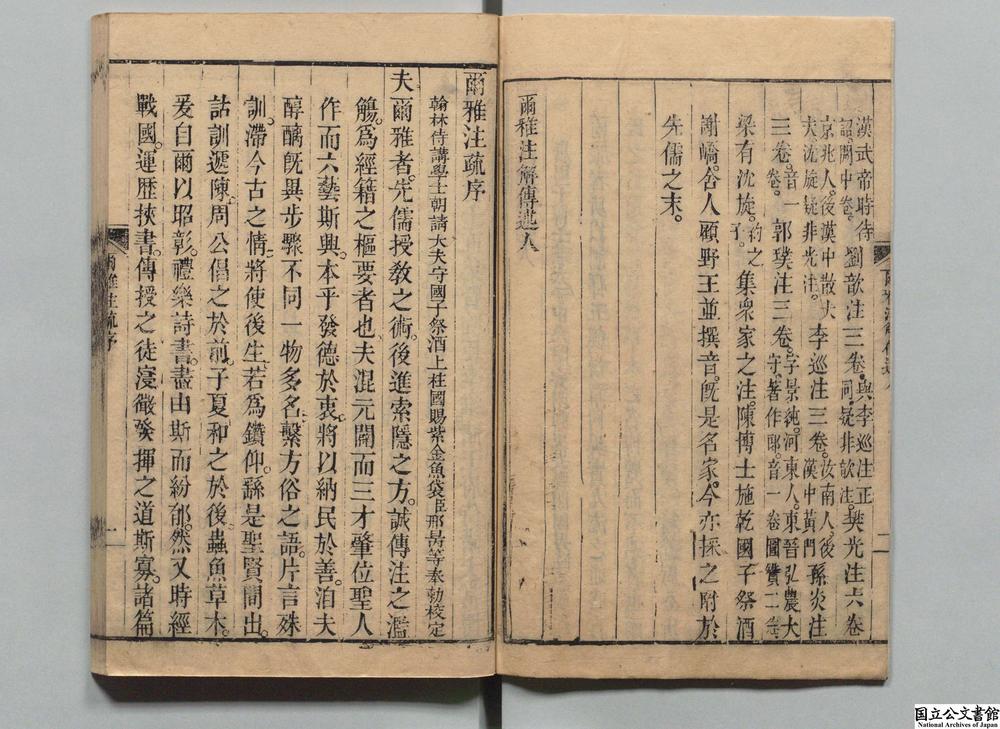 漢武帝時待
詔闕中卷。劉歆注三卷。與李巡注正
同。疑非歆注。樊光注六卷
京兆人。後漢中散大
夫沈旋疑非光注。李巡注三卷。汝南人。後
漢中黃門孫炎注
三卷。音一
卷。郭璞注三卷。字景純。河東人。東晉弘農大
守。著作郎。音一卷圖贊二卷
梁有沈旋。約之
子。集衆家之注。陳博士施乾國子祭酒
謝嶠。舍人顧野王並撰音。旣是名家。今亦採之附於
先儒之末。
爾雅注解傳述人
爾雅注疏序
翰林侍講學士朝請大夫守國子祭酒上柱國賜紫金魚袋臣邢昺等奉勅校定
夫爾雅者。先儒授敎之術。後進索隱之方。誠傳注之濫
觴。爲經籍之樞要者也。夫混元闢而三才肇位聖人
作而六藝斯興。本乎發德於衷。將以納民於善。洎夫
醇醨旣異步驟不同一物多名。繫方俗之語。片言殊
訓。滯今古之情。將使後生。若爲鑽仰。繇是聖賢間出。
詁訓遞陳。周公倡之於前。子夏和之於後。蟲魚草木。
爰自爾以昭彰。禮樂詩書。盡由斯而紛郁。然又時經
戰國。運歷挾書。傳授之徒寖微發揮之道斯寡。諸篇
爾雅注疏序
一
国立公文書館
National Archives of Japan